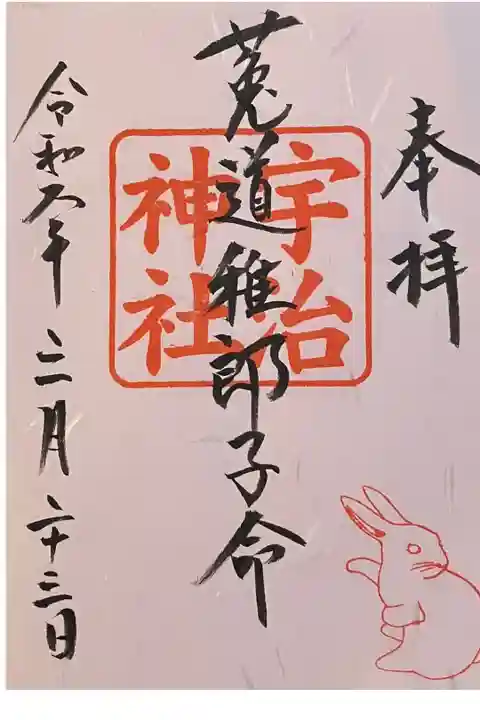 奉拝
菟道稚郎子命
宇治
神社
令和六年二月二十三日